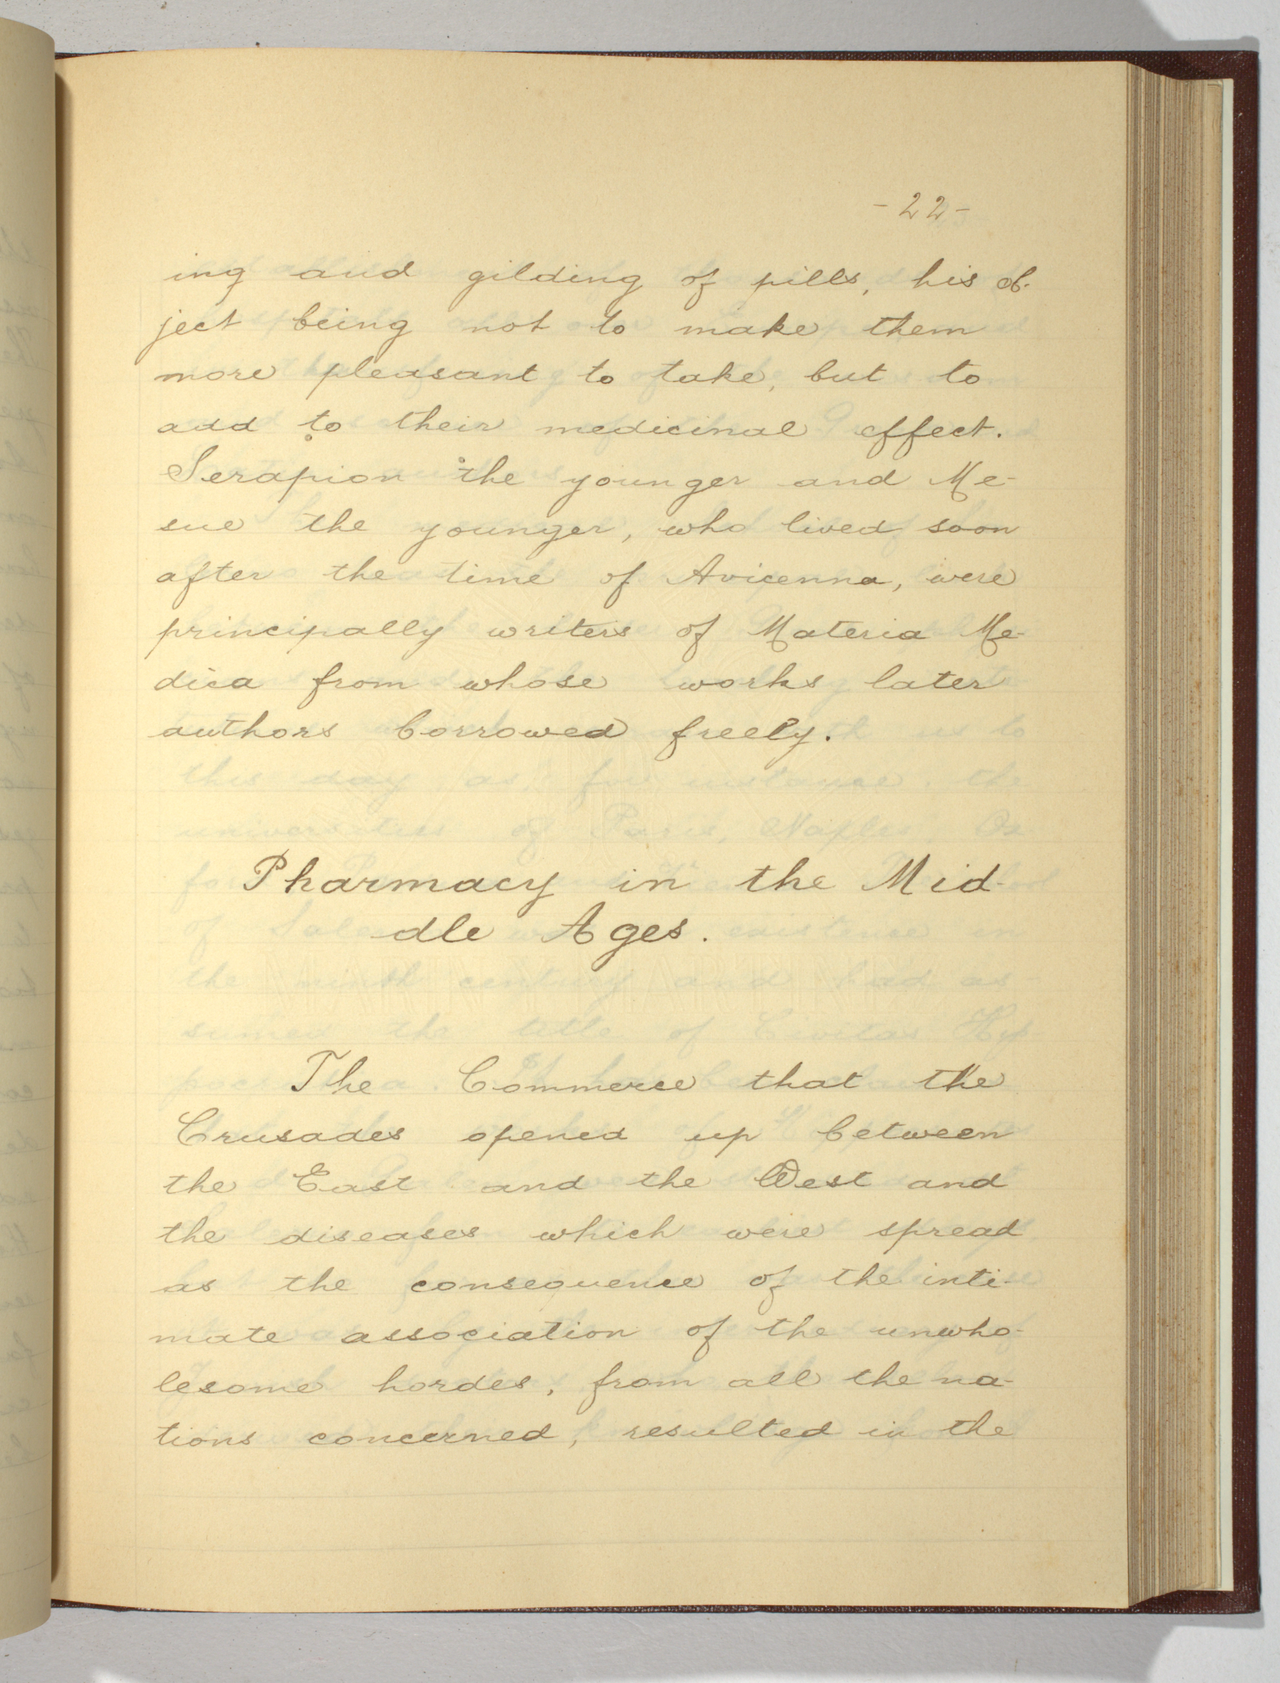 -22-
ing and gilding of pills, his ob-
ject being not to make them
more pleasant to take, but to
add to their medicinal effect.
Serapion the younger and Me-
sue the younger, who lived soon
after the time of Avicenna, were
principally writers of Materia Me-
dica from whose works later
authors borrowed freely.
Pharmacy in the Mid-
dle Ages.
The Commerce that the
Crusades opened up between
the East and the West and
the diseases which were spread
as the consequence of the inti-
mate association of the unwho-
lesome hordes, from all the na-
tions concerned, resulted in the